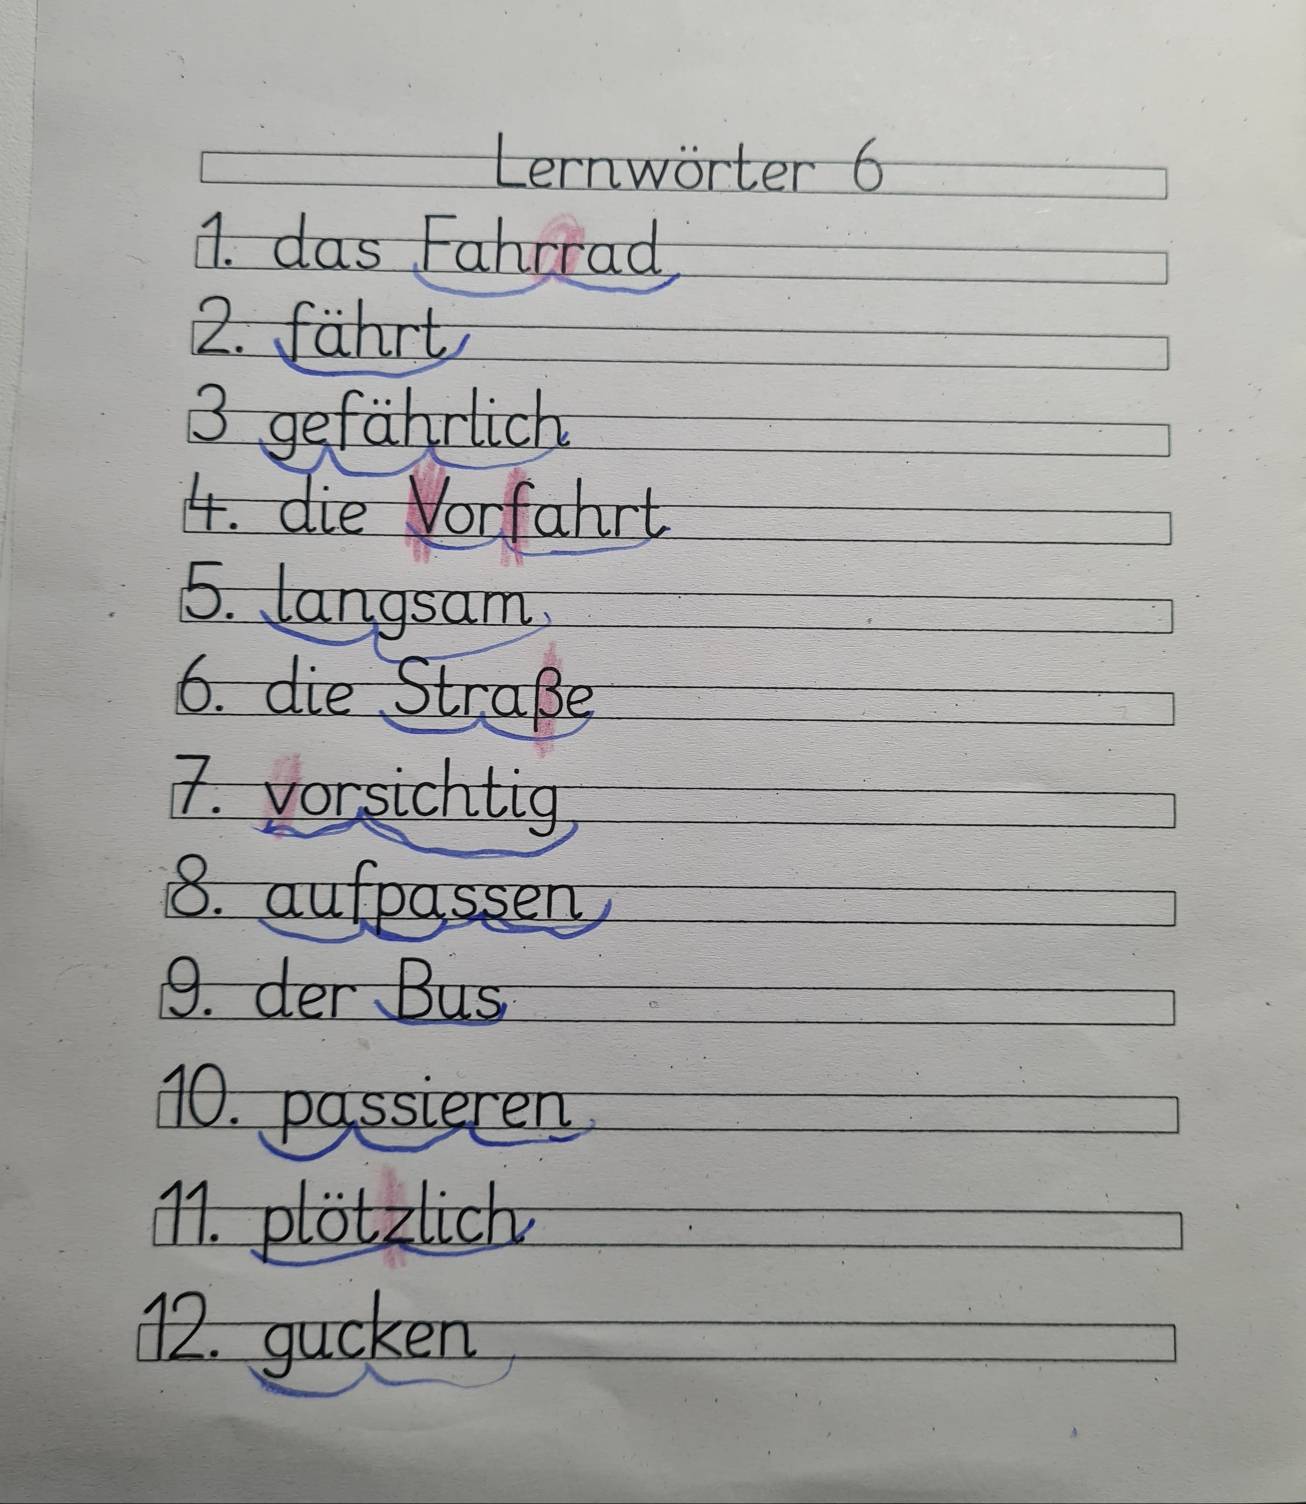 Lernwörter 6
1. das Fahrrad
2. fährt
3 gefährlich
4. die Vorfahrt
5. langsam
6. die Straße
7. vorsichtig
8. aufpassen
9. der Bus
10. passieren
11. plötzlich
12. gucken